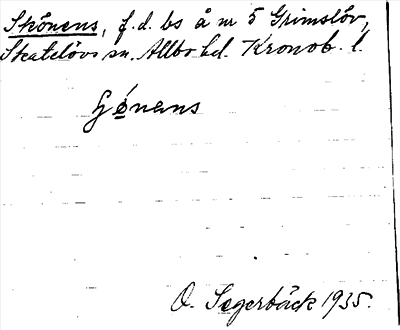 Skönens, f.d. bs å nr 5 Grimslöv,
Skatelövs sn. Allbo hd. Kronob. l.
O. Segerbäck 1935.